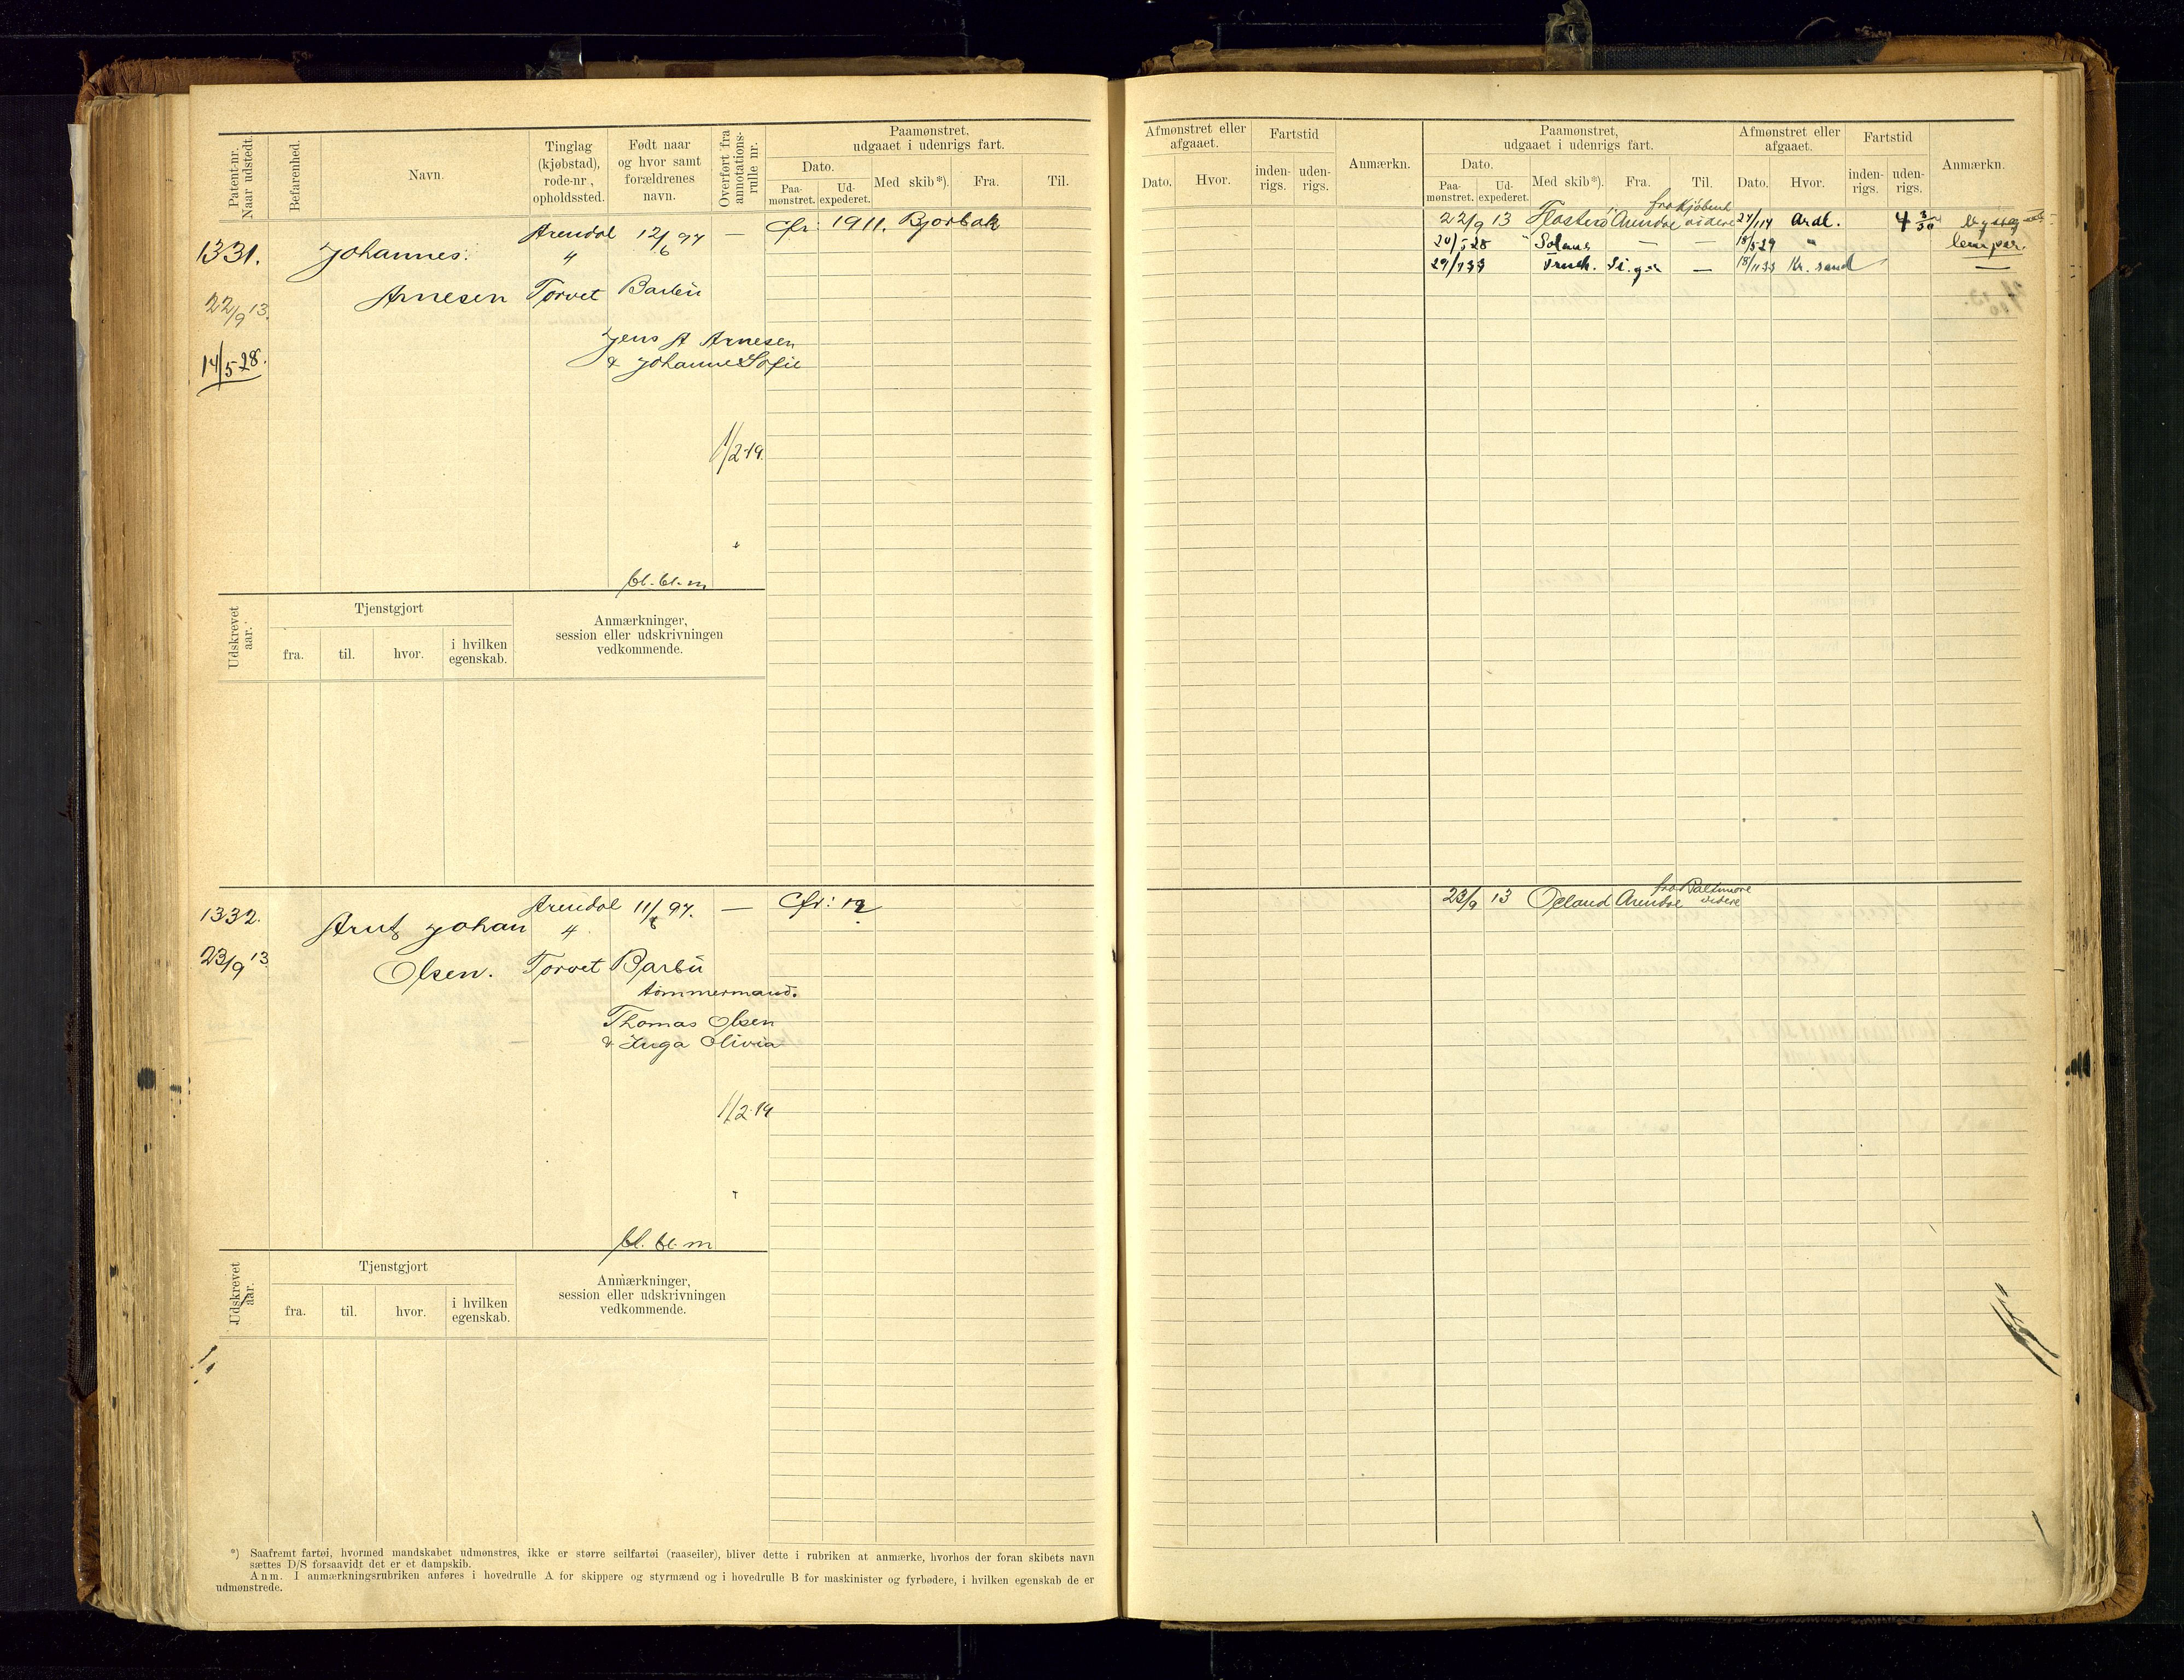 Patent-nr. Naar udstedt.
Befarenhed.
Navn.
Tinglag (kjøbstad), rode-nr., opholdssted.
Født naar og hvor samt forældrenes navn.
Overført fra annotations-rulle nr.
Paamønstret, udgaaet i udenrigs fart.
Dato.
Paa-mønstret.
Ud-expederet.
Med skib*).
Fra.
Til.
1331.
22/9 13.
14/5 28.
Johannes
Arnesen
Arendal
4
Torvet
12/6 97
Barbu
Jens A Arnesen
& Johanne Sofie
—
1/2 19.
bl. bl. m
Cfr: 1911. Bjorbak
Udskrevet aar.
Tjenstgjort
fra.
til.
hvor.
i hvilken egenskab.
Anmærkninger, session eller udskrivningen vedkommende.
1332.
23/9 13
Arnt Johan
Olsen.
Arendal
4
Torvet
11/ 97.
Barbu
tømmermand.
Thomas Olsen
& Inga Olivia
—
1/2 19
bl. bl. m
Cfr: 12
Udskrevet aar.
Tjenstgjort
fra.
til.
hvor.
i hvilken egenskab.
Anmærkninger, session eller udskrivningen vedkommende.
*) Saafremt fartøi, hvormed mandskabet udmønstres, ikke er større seilfartøi (raaseiler), bliver dette i rubriken at anmærke, hvorhos der foran skibets navn
sættes D/S forsaavidt det er et dampskib.
Anm. I anmærkningsrubriken anføres i hovedrulle A for skippere og styrmænd og i hovedrulle B for maskinister og fyrbødere, i hvilken egenskab de er
udmønstrede.
Afmønstret eller afgaaet.
Dato.
Hvor.
Fartstid
inden-rigs.
uden-rigs.
Anmærkn.
Paamønstret, udgaaet i udenrigs fart.
Dato.
Paa-mønstret.
Ud-expederet.
Med skib*).
Fra.
Til.
Afmønstret eller afgaaet.
Dato.
Hvor.
Fartstid
inden-rigs.
uden-rigs.
Anmærkn.
22/9 13 Flosterø Arendal fra Kjøbenh videre Ardl. 4 3/30
20/5 28 Solaas — — 18/5 29 " lemper.
— Kr. sand —
23/9 13 Opland Arendal fra Baltimore videre